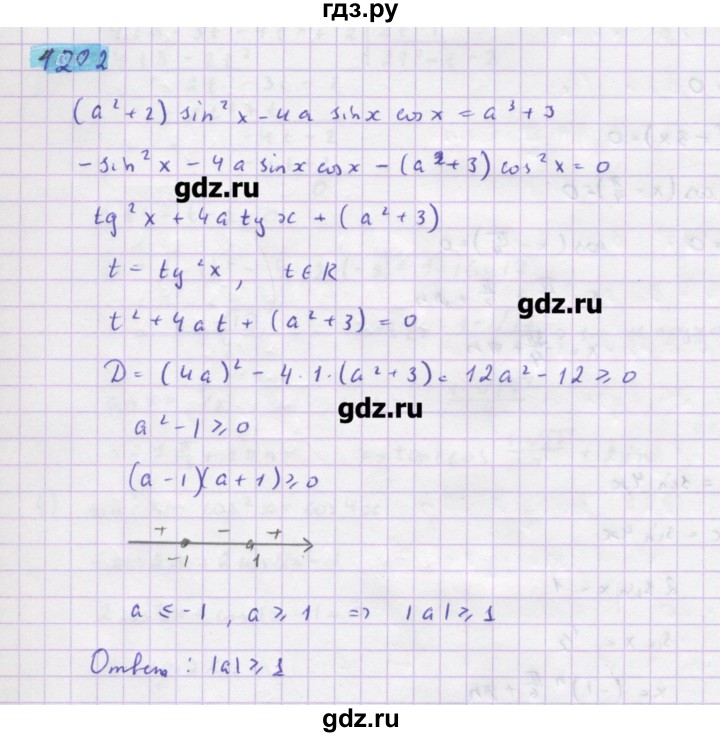 гдз.ру
1202
(a² + 2) sin² x - 4a sin x cos x = a³ + 3
- sin² x - 4 a sin x cos x - (a² + 3) cos² x = 0
gdz.ru
tg² x + 4 a tg x + (a² + 3)
t = tg² x, t ∈ R
gdz.ru
t² + 4 a t + (a² + 3) = 0
D = (4a)² - 4 · 1 · (a² + 3) = 12a² - 12 ⩾ 0
gdz.ru
a² - 1 ⩾ 0
(a - 1)(a + 1) ⩾ 0
+ - +
-1 1
a ≤ -1, a ⩾ 1 => |a| ⩾ 1
Ответ: |a| ⩾ 1
gdz.ru